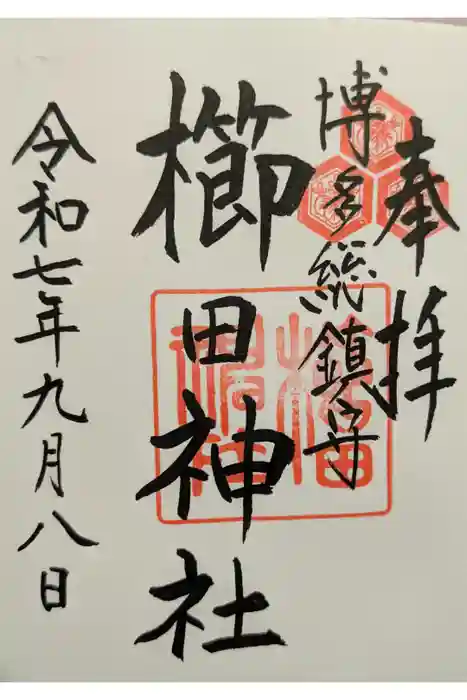 奉拝
博多総鎮守
櫛田神社
令和七年九月八日